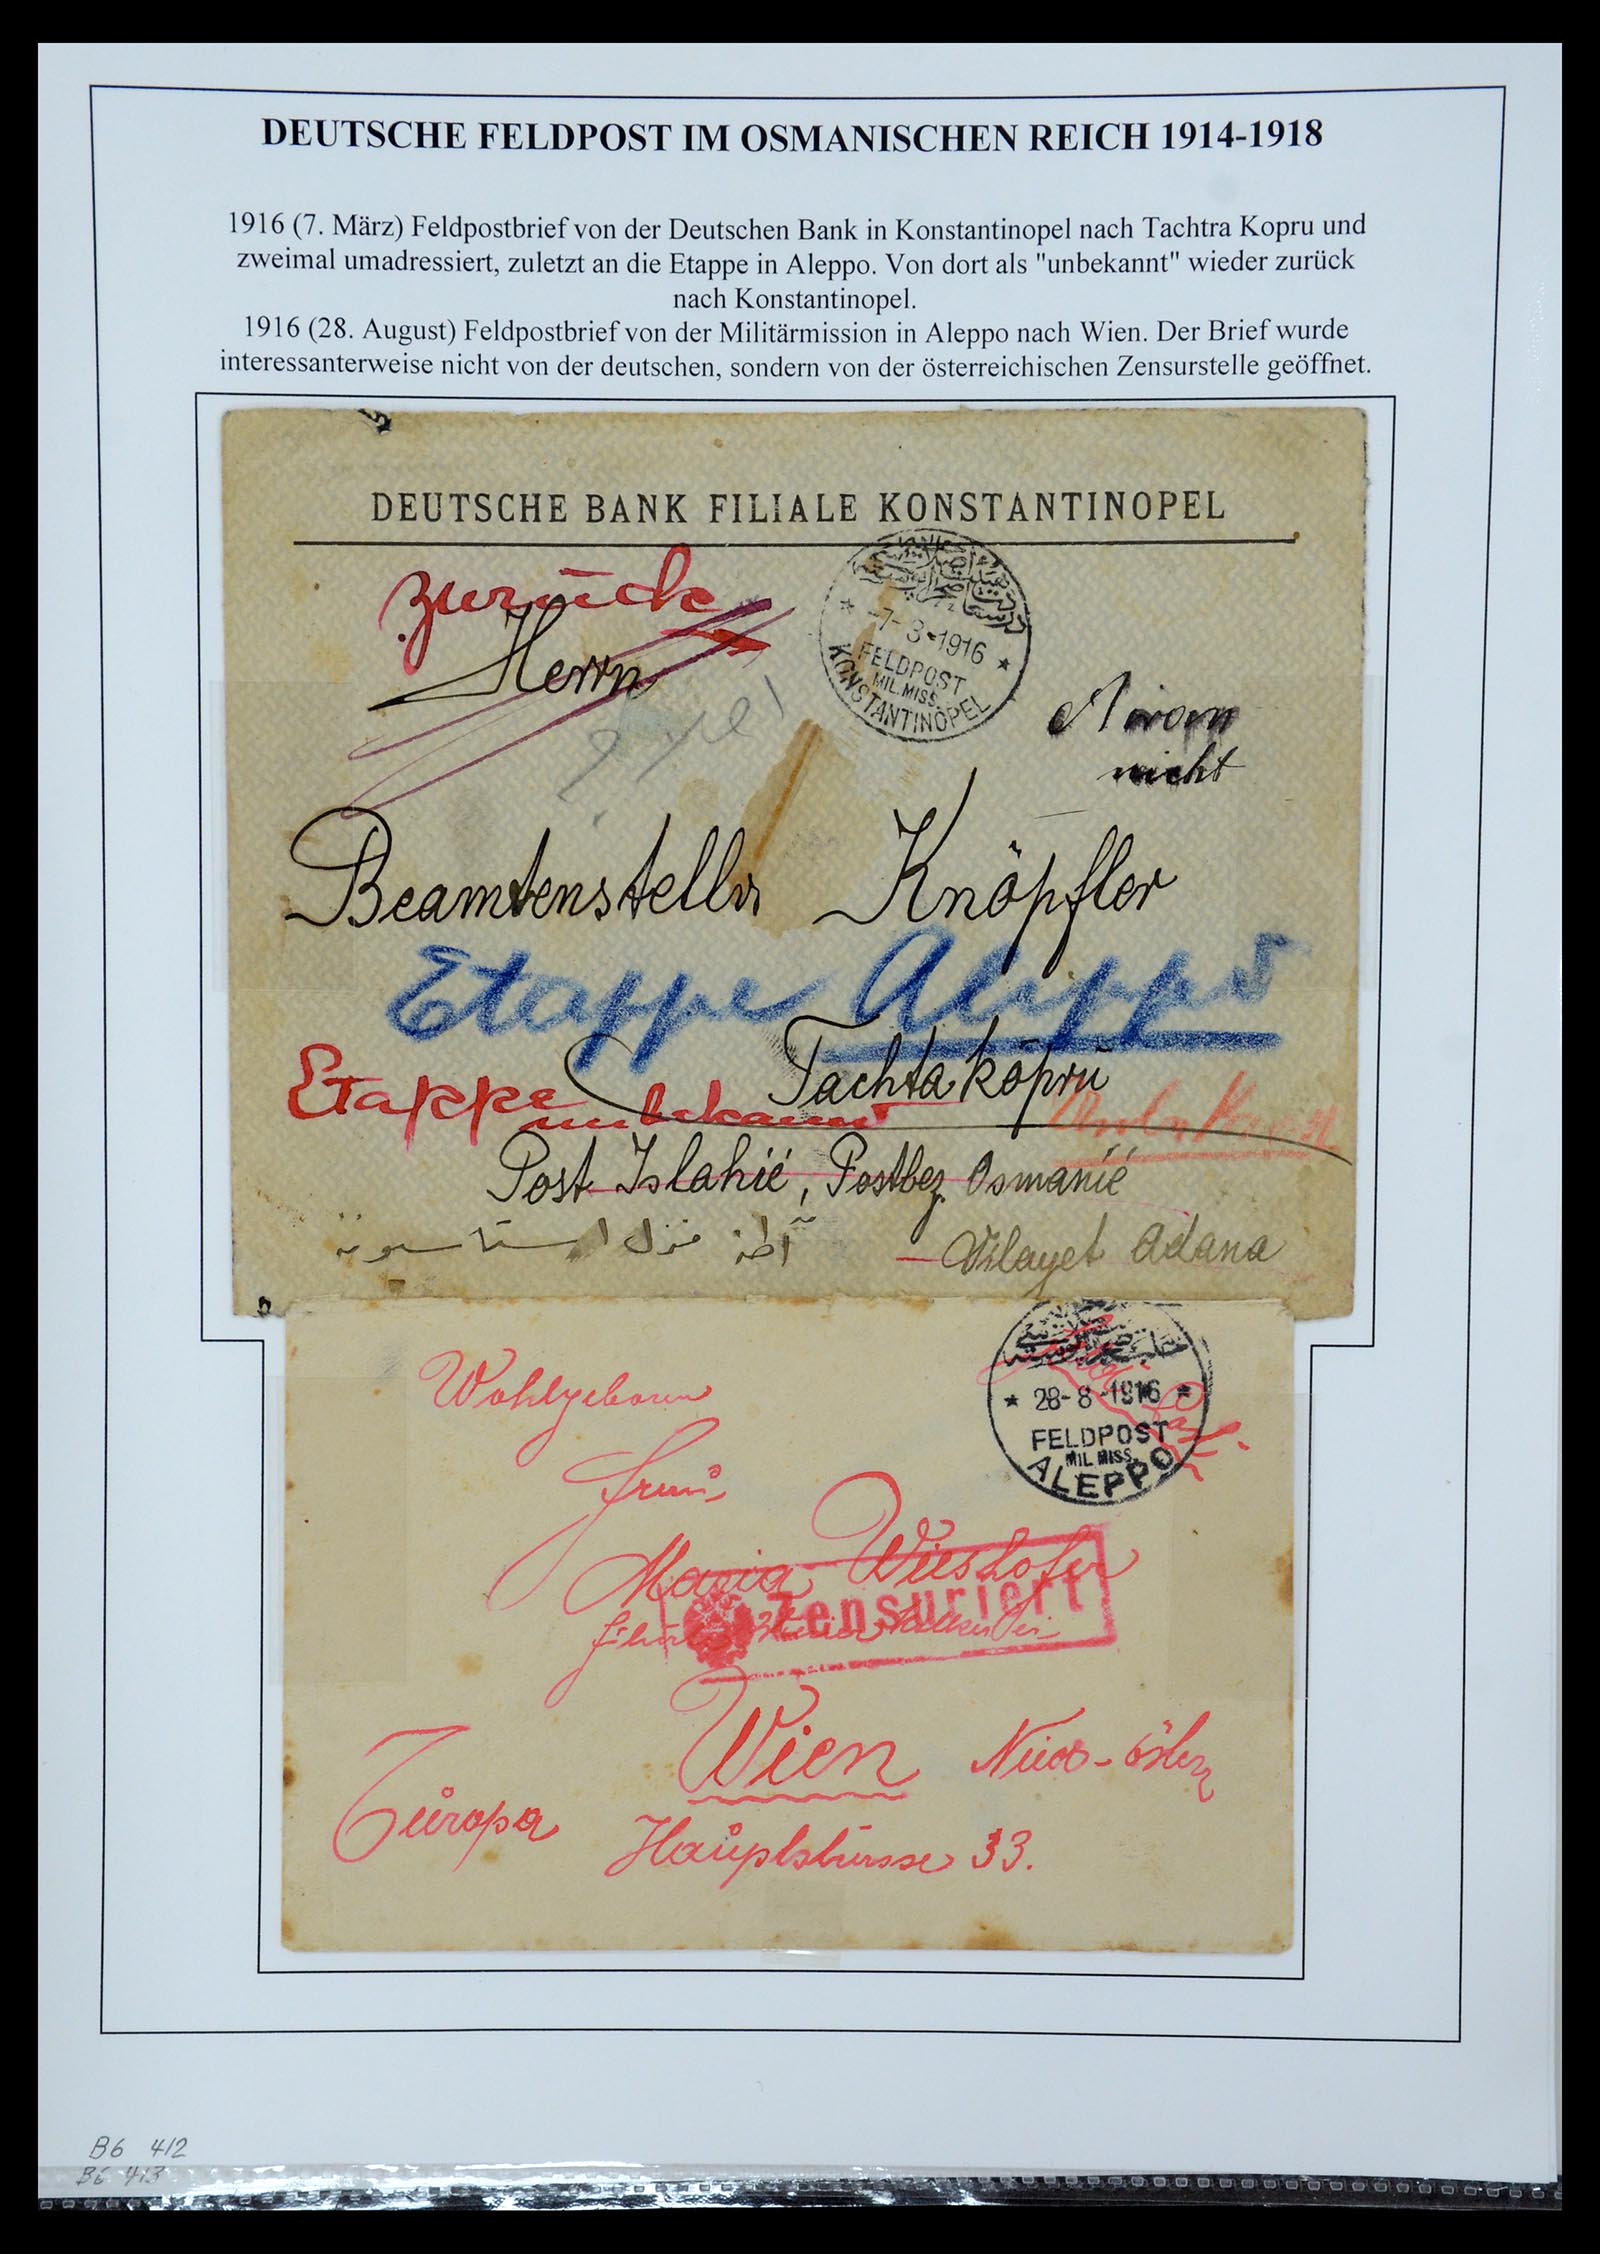 DEUTSCHE FELDPOST IM OSMANISCHEN REICH 1914-1918
1916 (7. März) Feldpostbrief von der Deutschen Bank in Konstantinopel nach Tachtra Kopru und
zweimal umadressiert, zuletzt an die Etappe in Aleppo. Von dort als "unbekannt" wieder zurück
nach Konstantinopel.
1916 (28. August) Feldpostbrief von der Militärmission in Aleppo nach Wien. Der Brief wurde
interessanterweise nicht von der deutschen, sondern von der österreichischen Zensurstelle geöffnet.
DEUTSCHE BANK FILIALE KONSTANTINOPEL
zurück
Herrn
-7-3-1916
FELDPOST
MIL.MISS.
KONSTANTINOPEL
nicht
Beamtenstellv Knöpfler
Etappe Aleppo
Tachtaköprü
Etappe unbekannt
Post Islahié, Postbez. Osmanié
Vilayet Adana
28-8-1916
FELDPOST
MIL.MISS.
ALEPPO
Wohlgeboren
Frau
Maria Wieshofer
Zensuriert
Wien
Europa
Hauptstrasse 33.
B6 412
B6 413